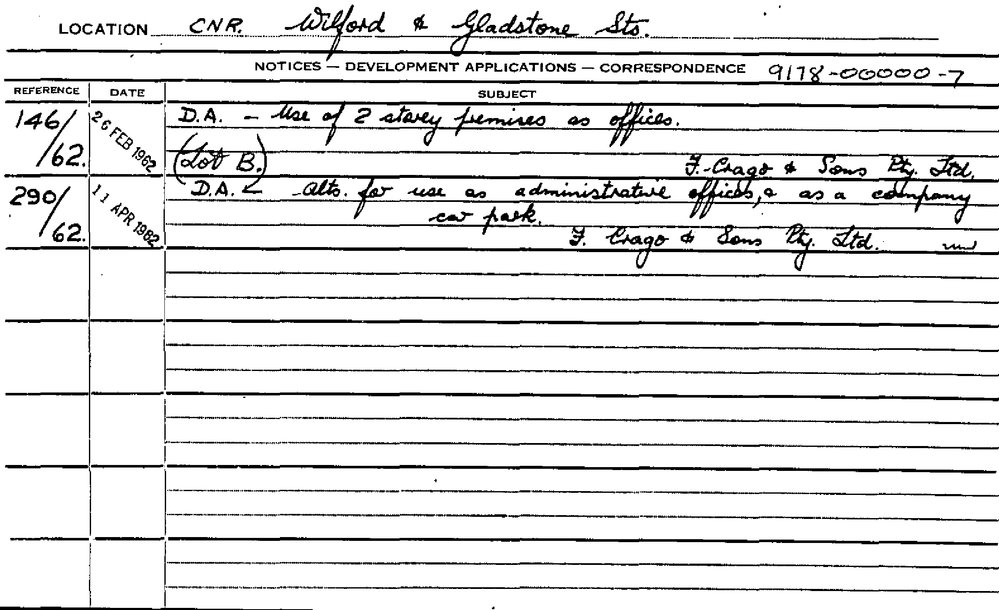 LOCATION CNR. Wilford & Gladstone Sts.
NOTICES — DEVELOPMENT APPLICATIONS — CORRESPONDENCE 9178-00000-7
REFERENCE DATE SUBJECT
146/62. 26 FEB 1962 D.A. - Use of 2 storey premises as offices.
(Lot B.) F. Crago & Sons Pty. Ltd.
290/62. 11 APR 1962 D.A. - Alts. for use as administrative offices, & as a company
car park.
F. Crago & Sons Pty. Ltd.